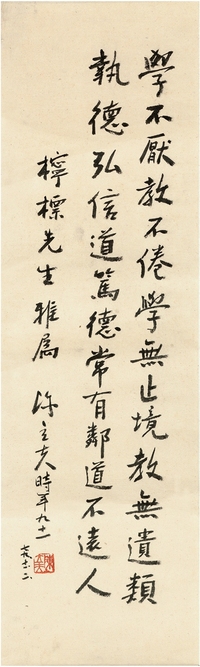 學不厭教不倦學無止境教無遺類
執德弘信道篤德常有鄰道不遠人
檸檬先生雅屬 陳立夫時年九十一